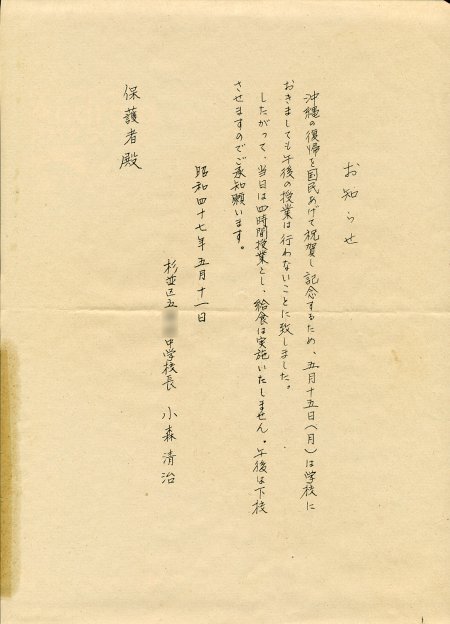 お知らせ
沖縄の復帰を国民あげて祝賀し記念するため、五月十五日(月)は学校に
おきましても午後の授業は行わないことに致しました。
したがって、当日は四時間授業とし、給食は実施いたしません。午後は下校
させますのでご承知願います。
昭和四十七年五月十一日
杉並区立 中学校長 小森清治
保護者殿